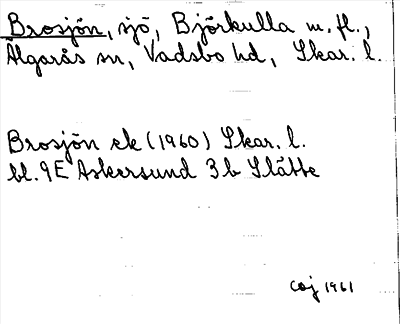 Brosjön, sjö, Björkulla m. fl.,
Älgarås sn, Vadsbo hd, Skar. l.
Brosjön ek (1960) Skar. l.
bl. 9E Askersund 3b Slätte
CGJ 1961